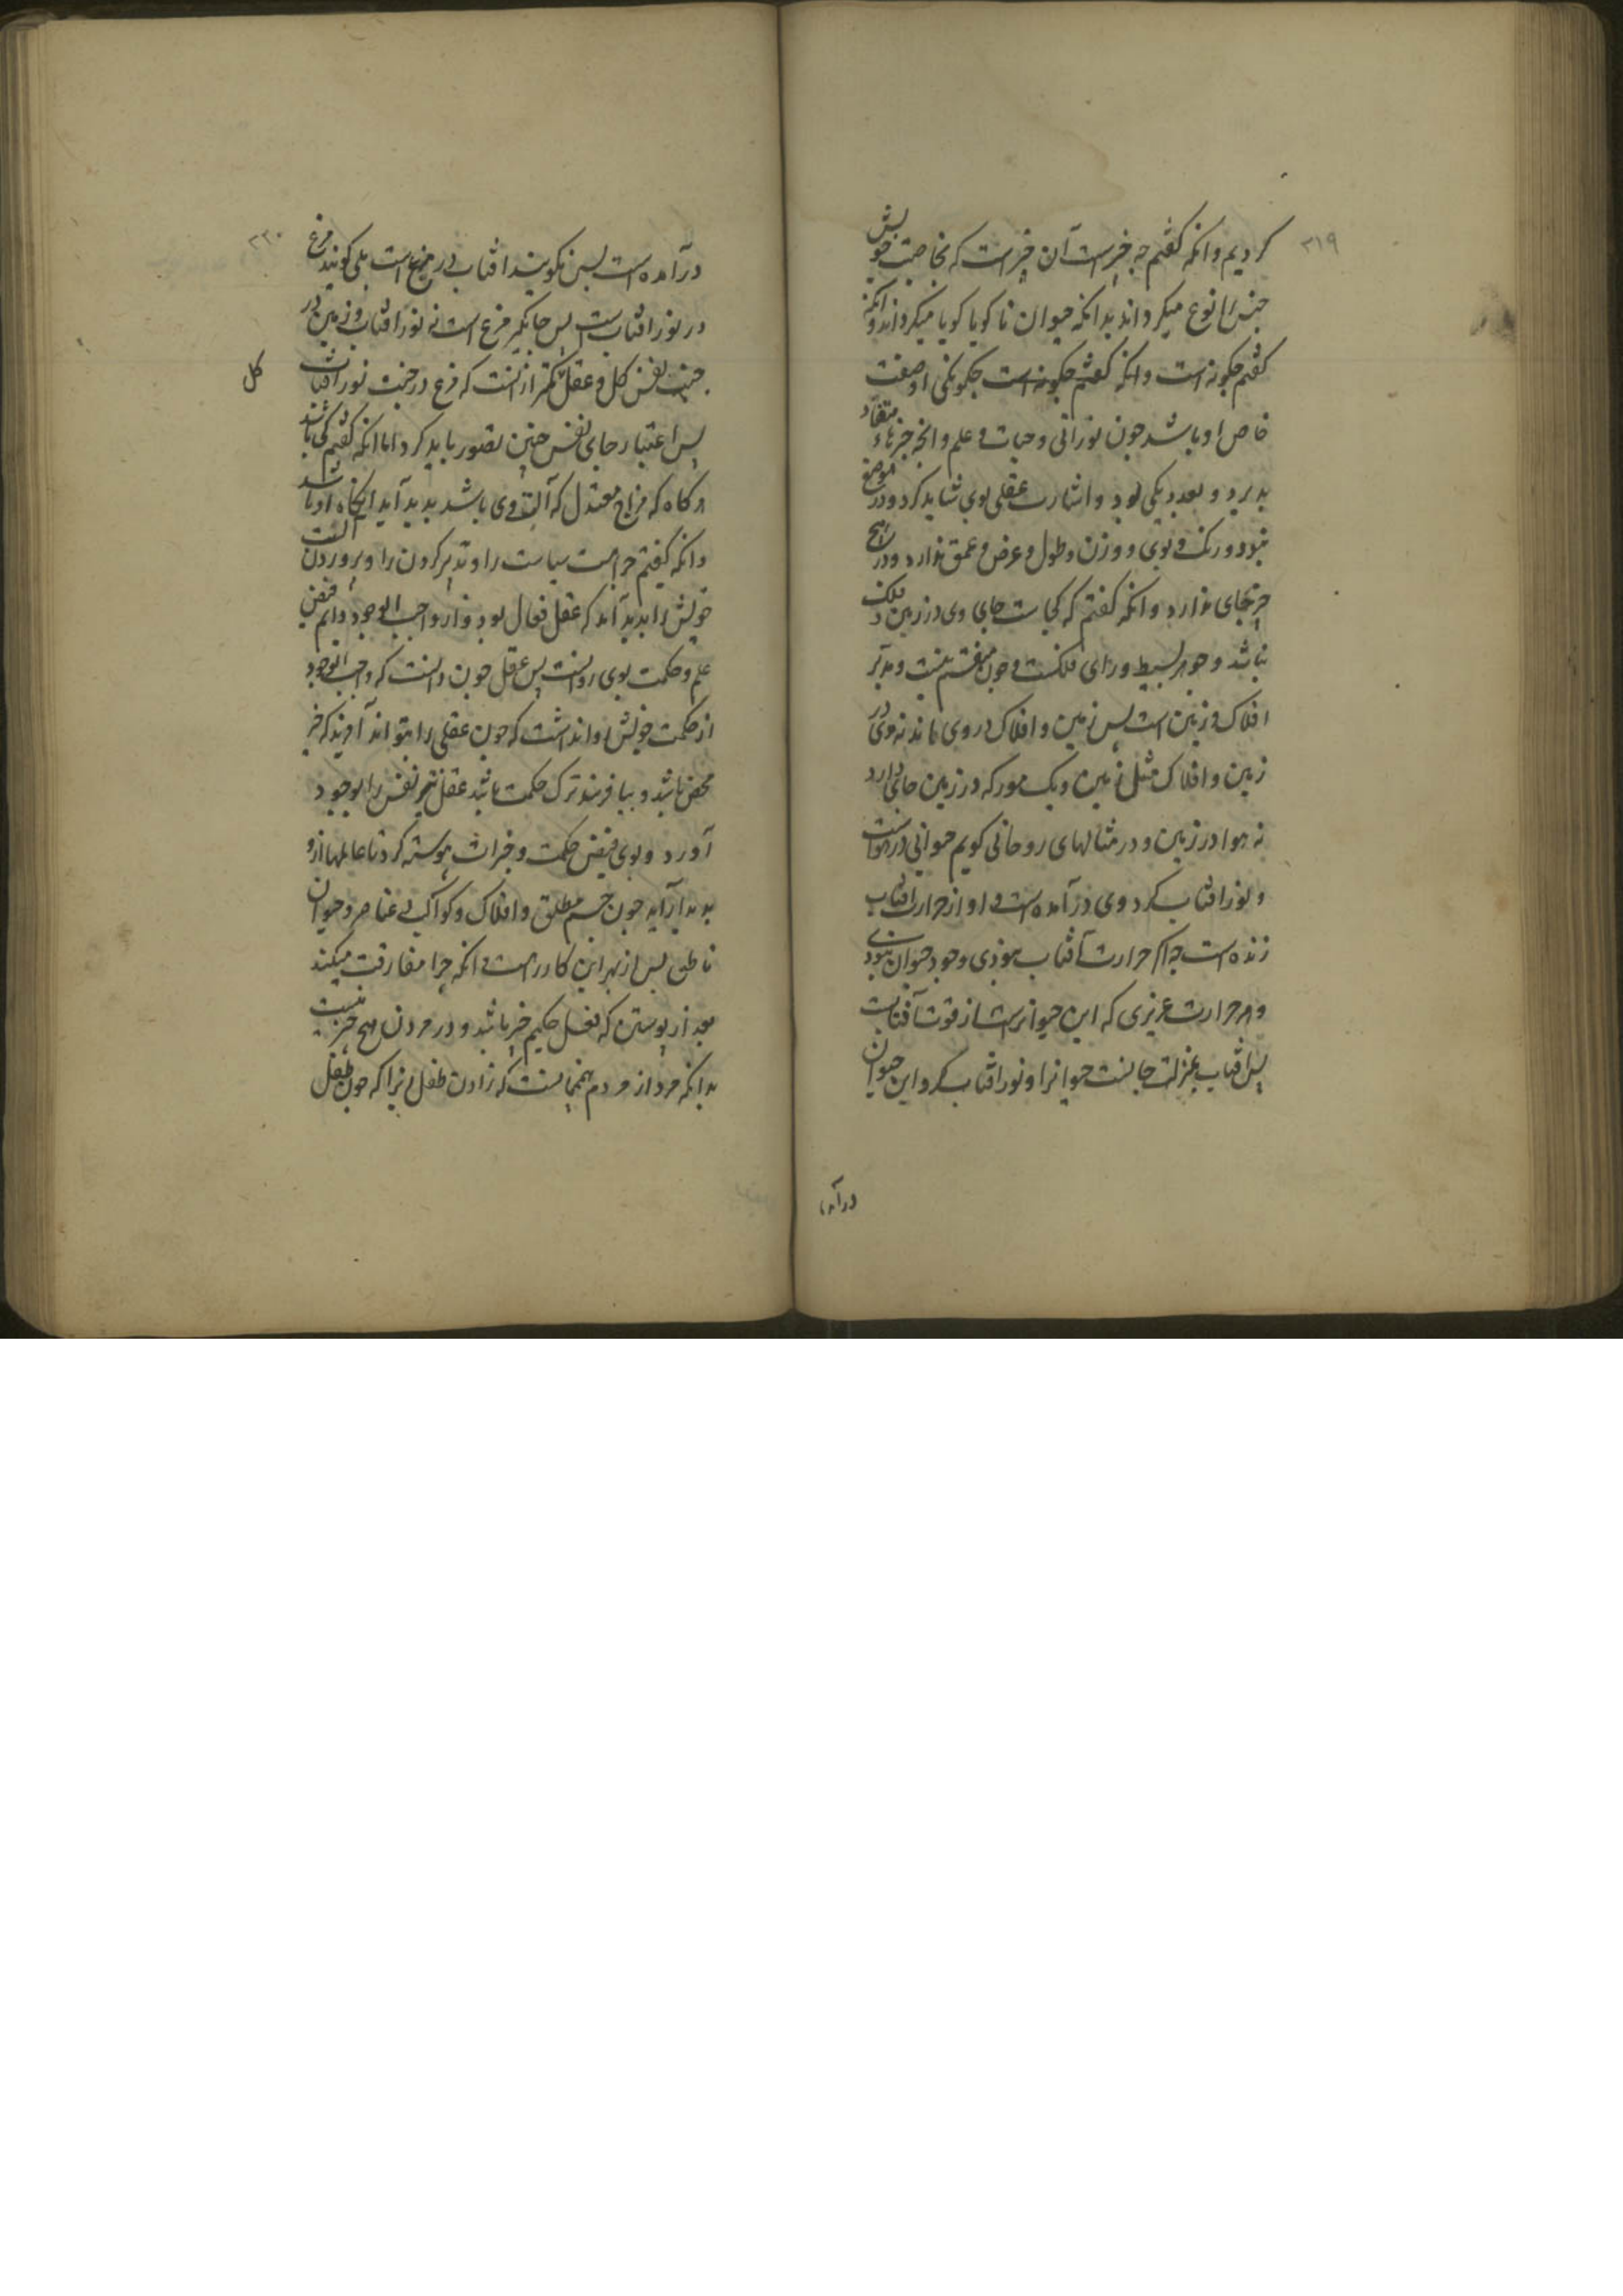 ۲۱۹
کردیم و انکه کفتم چه چیزست آن چیزست که بخاصیت خویش
جنس را نوع میکرداند بدانکه حیوان ناکویا کویا میکرداند و انکه
کفتم چکونه است و انکه کفتم چکونه است چکونکی او صفت
خاص او باشد چون نورانی و حیات و علم و انچه چیزهاء متضاد
پذیرد و بعدد یکی بود و اشارت عقلی بوی شاید کرد و در موضع
نبود و رنک و بوی و وزن و طول و عرض و عمق ندارد و در هیچ
چیز جای ندارد و انکه کفتم که کجاست جای وی در زمین و فلک
نباشد و جوهر بسیط ورای فلکست و چون منقسم نیست و مدبر
افلاک و زمین است پس زمین و افلاک در وی باشد نه وی در
زمین و افلاک مثل زمین و یک مور که در زمین جای دارد
نه هوا در زمین و در مثالهای روحانی کویم حیوانی در هواست
و نور افتاب کرد وی درآمده است و او از حرارت افتاب
زنده است چه اکر حرارت آفتاب نبودی وجود حیوان نبودی
و هر حرارت غریزی که این حیوانراست از قوت آفتابست
پس افتاب بمنزلت جانست حیوانرا و نور افتاب کرد این حیوان
درآمده
۲۲۰
درآمده است پس نکویند افتاب در مرغ است بلی کویند مرغ
در نور افتاب است پس جایکیر مرغ است نه نور افتاب و زمین در
جنب نفس کل و عقل کمتر ازانست که مرغ در جنب نور افتاب
کل
پس اعتبار جای نفس چنین تصور باید کرد اما انکه کفتم کی باشد
هرکاه که مزاج معتدل که آلت وی باشد پدید آید انکاه او باشد
و انکه کفتم چراست سیاست را و تدبیر کردن را و پروردن آلت
خویش را پدید آمد که عقل فعال بود و از واجب الوجود دایم فیض
علم و حکمت بوی روانست پس عقل چون دانست که واجب الوجود
از حکمت خویش روا نداشت که چون عقلی را بتواند آفرید که خیر
محض باشد و نیافریند ترک حکمت باشد عقل نیز نفس را بوجود
آورد و بوی فیض حکمت و خیرات پیوسته کرد تا عالمها ازو
پدیدار آید چون جسم مطلق و افلاک و کواکب و عناصر و حیوان
ناطق پس از بهر این کار است و انکه چرا مفارقت میکند
بعد از پیوستن که فعل حکیم خیر باشد و در مردن هیچ خیر نیست
بدانکه مرد از مردم همچنانست که زادن طفل زیرا که چون طفل